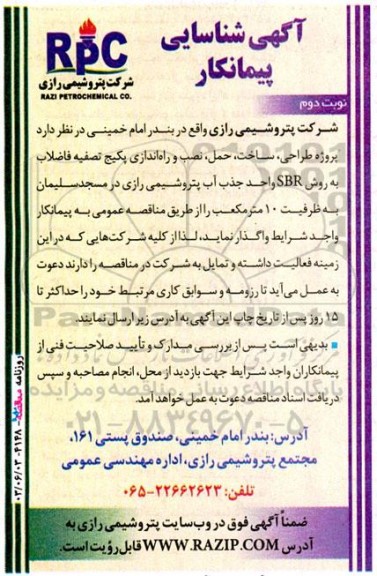 آگهی شناسایی
پیمانکار
RPC
شرکت پتروشیمی رازی
RAZI PETROCHEMICAL CO.
نوبت دوم
شرکت پتروشیمی رازی واقع در بندر امام خمینی در نظر دارد
پروژه طراحی، ساخت، حمل، نصب و راه‌اندازی پکیج تصفیه فاضلاب
به روش SBR واحد جذب آب پتروشیمی رازی در مسجدسلیمان
به ظرفیت ۱۰ مترمکعب را از طریق مناقصه عمومی به پیمانکار
واجد شرایط واگذار نماید، لذا از کلیه شرکت‌هایی که در این
زمینه فعالیت داشته و تمایل به شرکت در مناقصه را دارند دعوت
به عمل می‌آید تا رزومه و سوابق کاری مرتبط خود را حداکثر تا
۱۵ روز پس از تاریخ چاپ این آگهی به آدرس زیر ارسال نمایند.
■ بدیهی است پس از بررسی مدارک و تأیید صلاحیت فنی از
پیمانکاران واجد شرایط جهت بازدید از محل، انجام مصاحبه و سپس
دریافت اسناد مناقصه دعوت به عمل خواهد آمد.
۰۲۱-۸۸۳۴۹۶۷۰-۵
آدرس: بندر امام خمینی، صندوق پستی ۱۶۱،
مجتمع پتروشیمی رازی، اداره مهندسی عمومی
تلفن: ۲۲۶۶۲۶۲۳-۰۶۵
ضمناً آگهی فوق در وب‌سایت پتروشیمی رازی به
آدرس WWW.RAZIP.COM قابل رؤیت است.
روزنامه
۴۱۴۸-۰۳/۰۶/۰۳